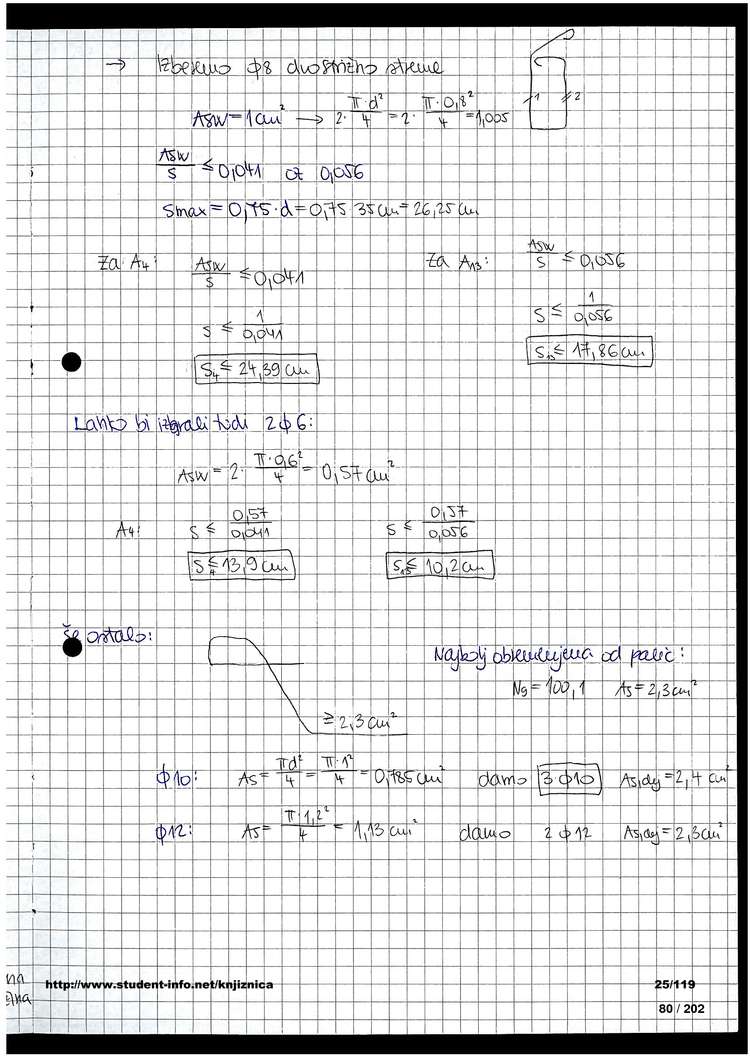 → Izberemo φ8 dvostrižno streme
1 2
Asw = 1 cm² → 2·π·d²/4 = 2·π·0,8²/4 = 1,005
Asw/s ≤ 0,041 oz 0,056
Smax = 0,75·d = 0,75 35 cm = 26,25 cm
Za A4: Asw/s ≤ 0,041 Za A13: Asw/s ≤ 0,056
s ≤ 1/0,041 s ≤ 1/0,056
S4 ≤ 24,39 cm S13 ≤ 17,86 cm
Lahko bi izbrali tudi 2φ6:
Asw = 2·π·0,6²/4 = 0,57 cm²
A4: s ≤ 0,57/0,041 s ≤ 0,57/0,056
S4 ≤ 13,9 cm S13 ≤ 10,2 cm
Še ostalo:
Najbolj obremenjena od palic:
N9 = 100,1 As = 2,3 cm²
≥ 2,3 cm²
φ10: As = πd²/4 = π·1²/4 = 0,785 cm² damo 3φ10 As,dej = 2,4 cm²
φ12: As = π·1,2²/4 = 1,13 cm² damo 2φ12 As,dej = 2,3 cm²
na
http://www.student-info.net/knjiznica 25/119
80 / 202